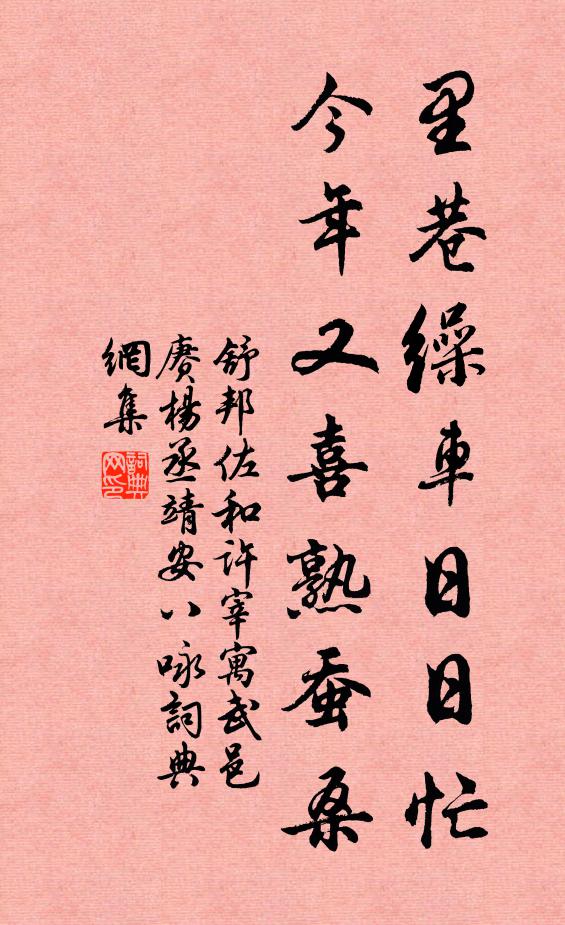 里巷缲車日日忙
今年又喜熟蚕桑
舒邦佐和許宰寓武邑
賡楊丞靖安八咏詞典
網集
詞典网印